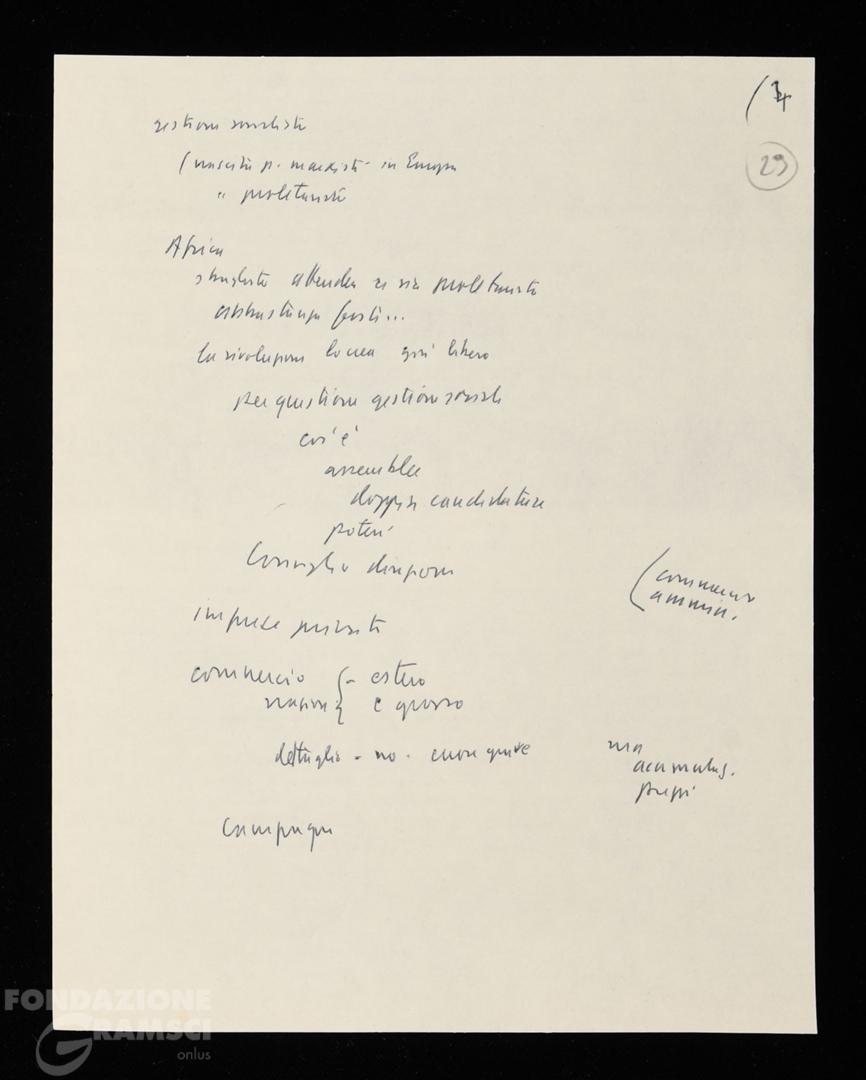 (4
29
gestione socialista
(nascita p. marxisti in Europa
" proletariato
Africa
attendere se sia proletariato
abbastanza forte...
la rivoluzione
per questione gestione sociale
cos'è
assemblea
doppia candidature
poteri
Consiglio direzione
(commercio
ammin.
imprese private
commercio { - estero
nazion { e grosso
dettaglio - no - errore grave
ma
accumulaz.
prezzi
campagna
FONDAZIONE
GRAMSCI
onlus